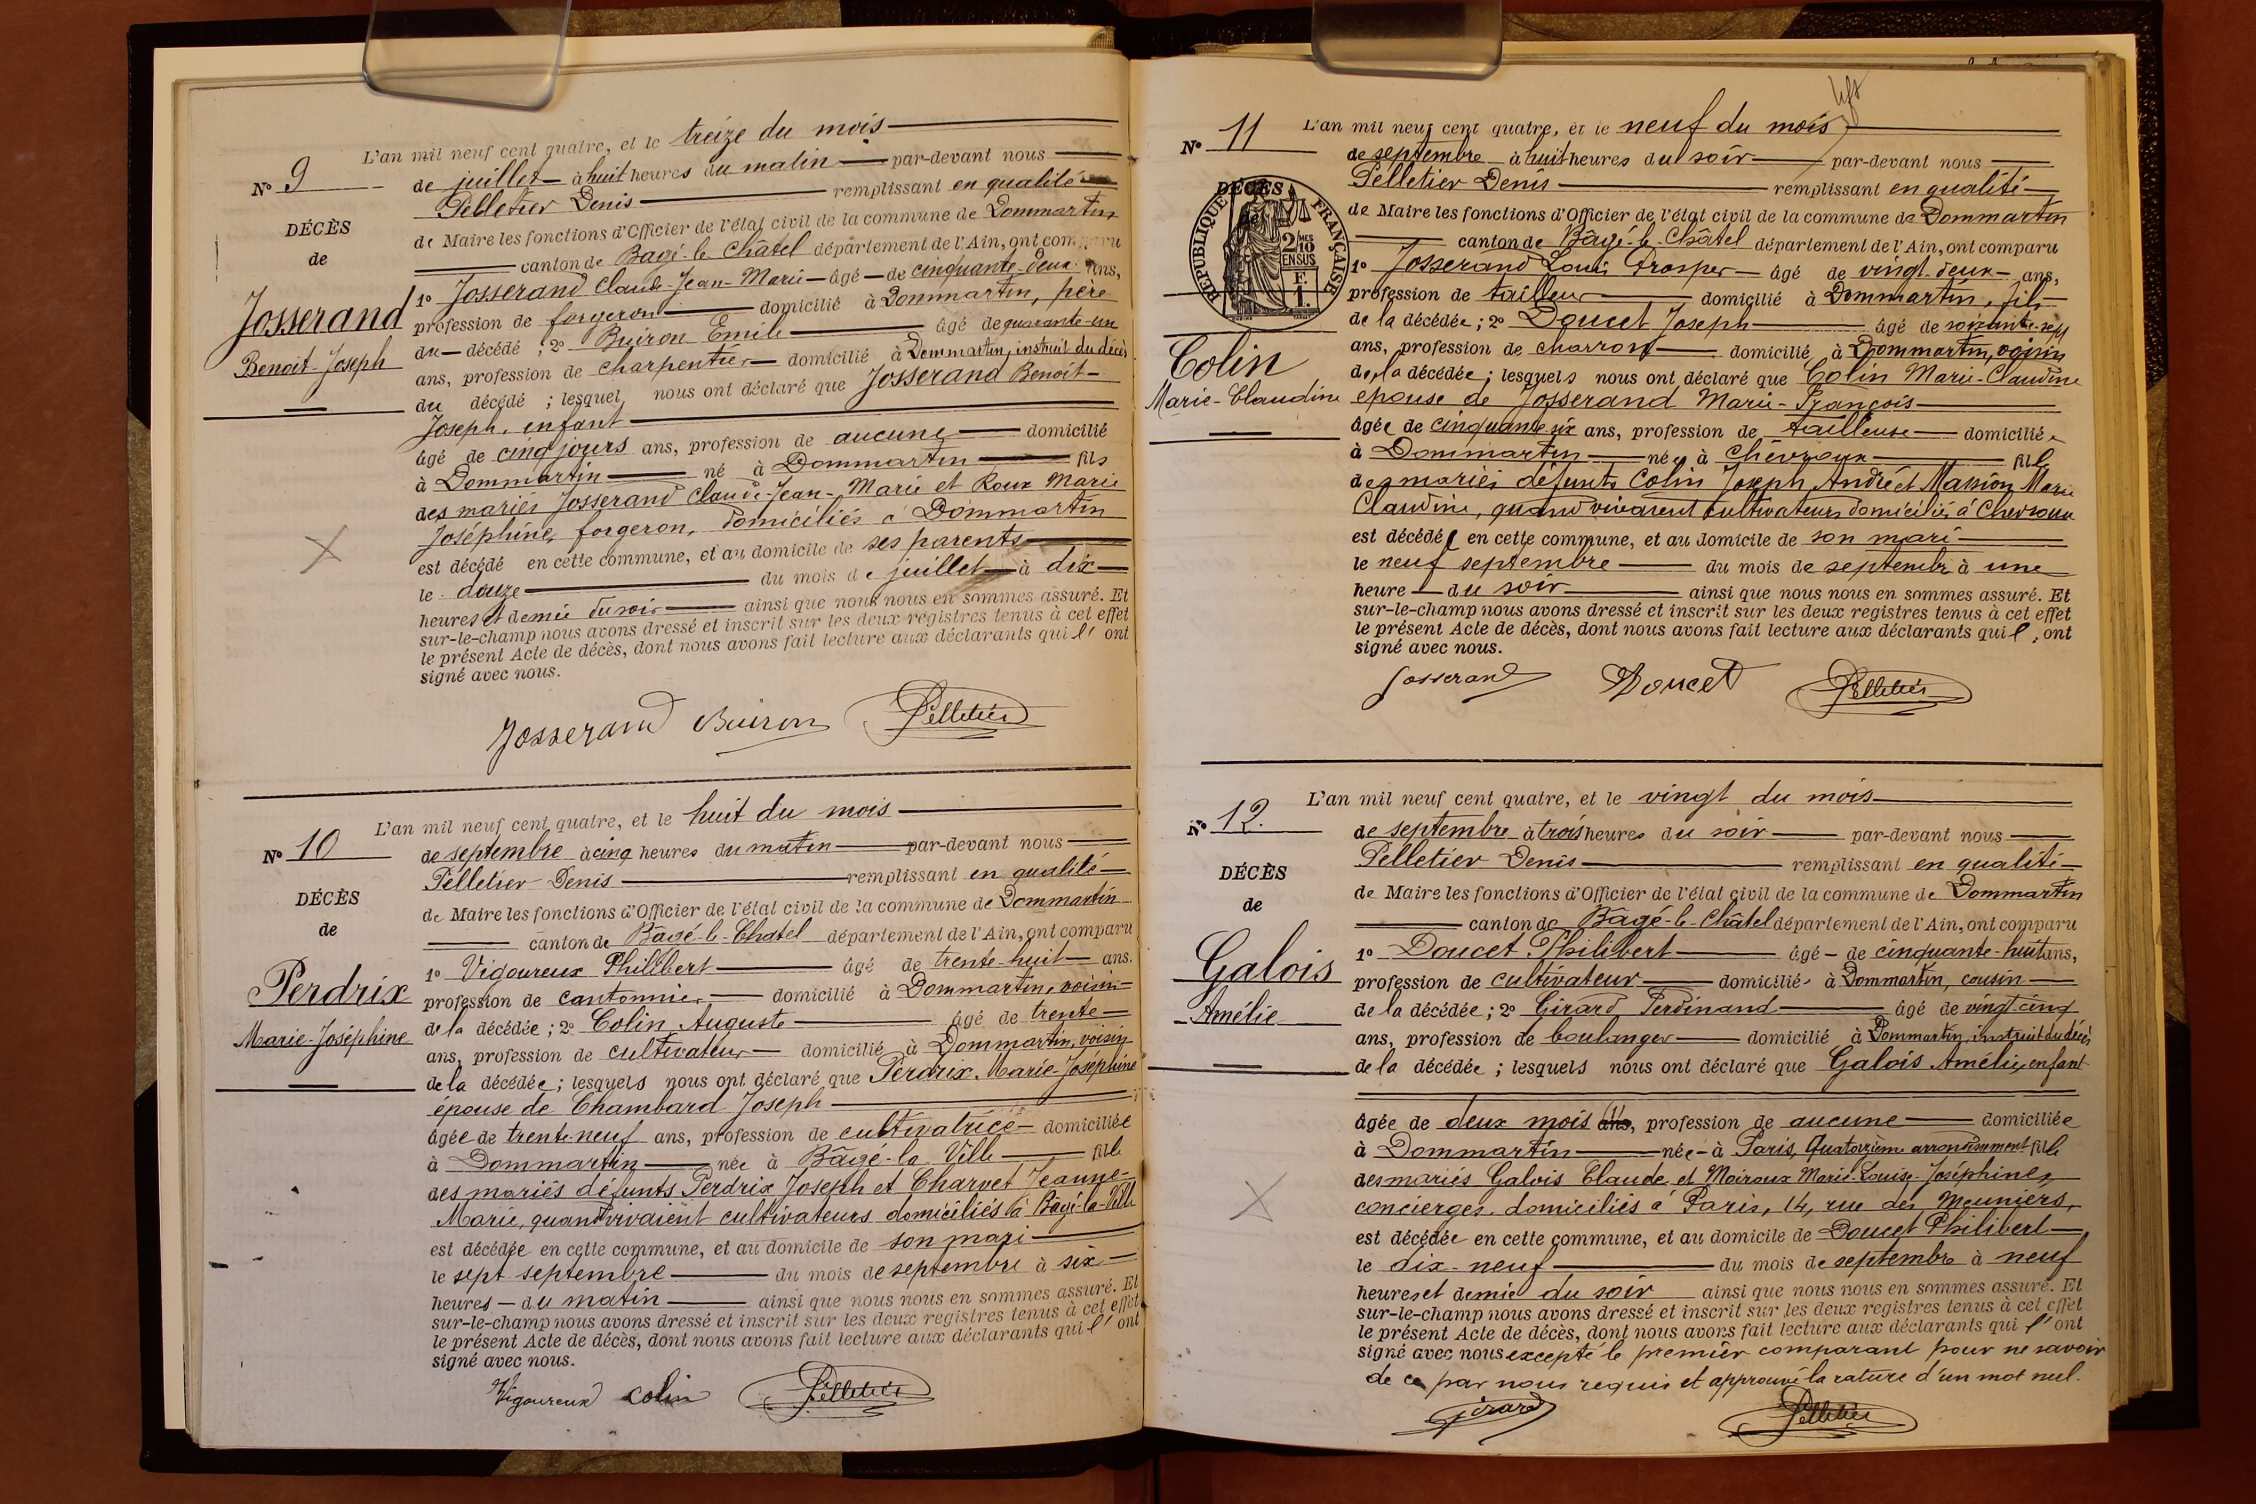 L'an mil neuf cent quatre, et le treize du mois
N° 9
de juillet à huit heures du matin par-devant nous
Pelletier Denis remplissant en qualité
DÉCÈS
de Maire les fonctions d'Officier de l'état civil de la commune de Dommartin
de
canton de Bagé-le-Châtel département de l'Ain, ont comparu
1° Josserand Claude-Jean-Marie âgé de cinquante-deux ans,
Josserand
profession de forgeron domicilié à Dommartin, père
du décédé ; 2° Buiron Emile âgé de quarante-un
Benoit-Joseph
ans, profession de charpentier domicilié à Dommartin, instruit du décès
du décédé ; lesquels nous ont déclaré que Josserand Benoit-
Joseph, enfant
âgé de cinq jours ans, profession de aucune domicilié
à Dommartin né à Dommartin fils
des mariés Josserand Claude-Jean-Marie et Roux Marie
Joséphine, forgeron, domiciliés à Dommartin
est décédé en cette commune, et au domicile de ses parents
le douze du mois de juillet à dix
heures et demie du soir ainsi que nous nous en sommes assuré. Et
sur-le-champ nous avons dressé et inscrit sur les deux registres tenus à cet effet
le présent Acte de décès, dont nous avons fait lecture aux déclarants qui l'ont
signé avec nous.
Josserand Buiron Pelletier
L'an mil neuf cent quatre, et le huit du mois
N° 10
de septembre à cinq heures du matin par-devant nous
Pelletier Denis remplissant en qualité
DÉCÈS
de Maire les fonctions d'Officier de l'état civil de la commune de Dommartin
de
canton de Bâgé-le-Chatel département de l'Ain, ont comparu
1° Vigoureux Philibert âgé de trente-huit ans.
Perdrix
profession de cantonnier domicilié à Dommartin, voisin
Marie-Joséphine
de la décédée ; 2° Colin Auguste âgé de trente
ans, profession de cultivateur domicilié à Dommartin, voisin
de la décédée ; lesquels nous ont déclaré que Perdrix Marie-Joséphine
épouse de Chambard Joseph
âgée de trente-neuf ans, profession de cultivatrice domiciliée
à Dommartin née à Bâgé-la-Ville fille
des mariés défunts Perdrix Joseph et Charvet Jeanne-
Marie, quand vivaient cultivateurs domiciliés à Bâgé-la-Ville
est décédée en cette commune, et au domicile de son mari
le sept septembre du mois de septembre à six
heures du matin ainsi que nous nous en sommes assuré. Et
sur-le-champ nous avons dressé et inscrit sur les deux registres tenus à cet effet
le présent Acte de décès, dont nous avons fait lecture aux déclarants qui l'ont
signé avec nous.
Vigoureux Colin Pelletier
L'an mil neuf cent quatre, et le neuf du mois
N° 11
de septembre à huit heures du soir par-devant nous
Pelletier Denis remplissant en qualité
DÉCÈS
RÉPUBLIQUE FRANÇAISE
2/10 MES EN SUS
F. 1.
de Maire les fonctions d'Officier de l'état civil de la commune de Dommartin
canton de Bâgé-le-Châtel département de l'Ain, ont comparu
1° Josserand Louis Prosper âgé de vingt-deux ans,
profession de tailleur domicilié à Dommartin, fils
de la décédée ; 2° Doucet Joseph âgé de soixante-sept
Colin
ans, profession de charron domicilié à Dommartin, voisin
de la décédée ; lesquels nous ont déclaré que Colin Marie-Claudine
Marie-Claudine
épouse de Josserand Marie-François
âgée de ans, profession de tailleuse domiciliée
à Dommartin née à Chevroux fille
des mariés défunts Colin Joseph André et Marie
Claudine, quand vivaient cultivateurs domiciliés à Chevroux
est décédée en cette commune, et au domicile de son mari
le neuf septembre du mois de septembre à une
heure du soir ainsi que nous nous en sommes assuré. Et
sur-le-champ nous avons dressé et inscrit sur les deux registres tenus à cet effet
le présent Acte de décès, dont nous avons fait lecture aux déclarants qui l'ont
signé avec nous.
Josserand Doucet Pelletier
L'an mil neuf cent quatre, et le vingt du mois
N° 12.
de septembre à trois heures du soir par-devant nous
Pelletier Denis remplissant en qualité
DÉCÈS
de Maire les fonctions d'Officier de l'état civil de la commune de Dommartin
de
canton de Bâgé-le-Châtel département de l'Ain, ont comparu
1° Doucet Philibert âgé de cinquante-huit ans,
Galois
profession de cultivateur domicilié à Dommartin, cousin
Amélie
de la décédée ; 2° Girard Ferdinand âgé de vingt-cinq
ans, profession de boulanger domicilié à Dommartin, instruit du décès
de la décédée ; lesquels nous ont déclaré que Galois Amélie, enfant
âgée de deux mois ans, profession de aucune domiciliée
à Dommartin née à Paris, Quatorzième arrondissement fille
des mariés Galois Claude et Moiroux Marie-Louise-Joséphine,
concierges domiciliés à Paris, 14, rue des Meuniers,
est décédée en cette commune, et au domicile de Doucet Philibert
le dix-neuf du mois de septembre à neuf
heures et demie du soir ainsi que nous nous en sommes assuré. Et
sur-le-champ nous avons dressé et inscrit sur les deux registres tenus à cet effet
le présent Acte de décès, dont nous avons fait lecture aux déclarants qui l'ont
signé avec nous excepté le premier comparant pour ne savoir
de ce par nous requis et approuvé la rature d'un mot nul.
Girard Pelletier